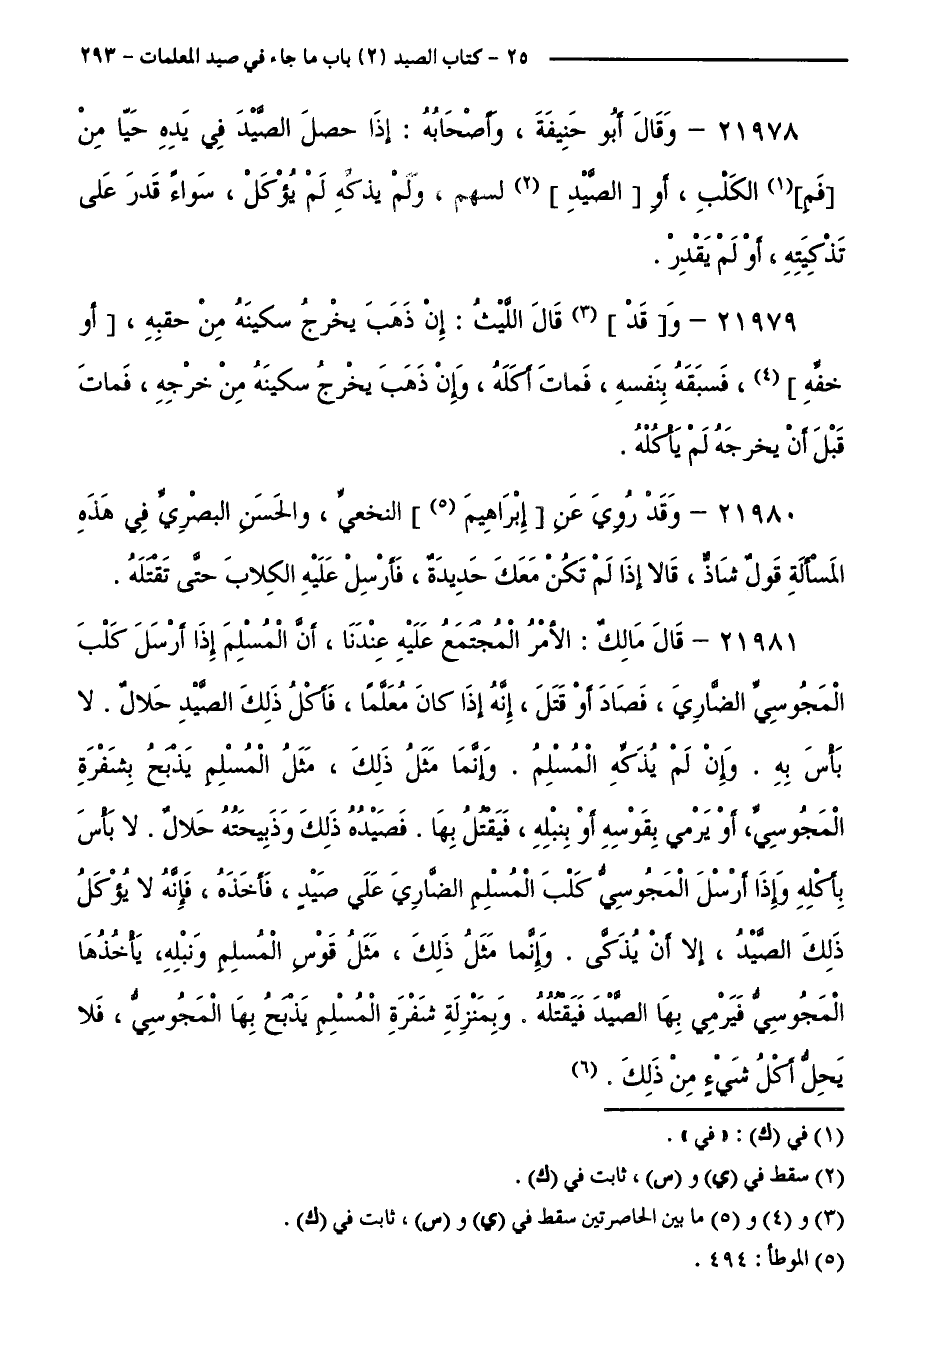 ٢٥ - كتاب الصيد (٢) باب ما جاء في صيد المعلمات - ٢٩٣
٢١٩٧٨ - وَقَالَ أَبُو حَنِيفَةَ ، وَأَصْحَابُهُ : إذَا حصلَ الصَّيْدَ فِي يَدِهِ حَيّا مِنْ
[فَمِ](١) الكَلْبِ ، أَوِ [ الصَّيْدِ ] (٢) لسهم ، ولَمْ يذكهِ لَمْ يُؤْكَلْ ، سَواءً قَدرَ عَلى
تَذْكِيَتِهِ ، أَوْ لَمْ يَقْدِرْ .
٢١٩٧٩ - وَ[ قَدْ ] (٣) قَالَ اللَّيْثُ : إِنْ ذَهَبَ يخْرِجُ سكينَهُ مِنْ حقبِهِ ، [ أو
خفِّهِ ] (٤) ، فَسبَقَهُ بِنَفسهِ ، فَماتَ أكَلَهُ ، وَإِنْ ذَهَبَ يخْرِجُ سكينَهُ مِنْ خرْجِهِ ، فَماتَ
قَبْلَ أَنْ يخرجَهُ لَمْ يَأكُلْهُ .
٢١٩٨٠ - وَقَدْ رُوِيَ عَنِ [ إِبْرَاهِيمَ (٥) ] النخعيِّ ، والحَسَنِ البصْرِيِّ فِي هَذهِ
المَسْأَلَةِ قَولٌ شاذٌّ ، قَالا إذَا لَمْ تَكُنْ مَعَكَ حَدِيدَةٌ ، فَأَرْسِلْ عَلَيْهِ الكِلابَ حتَّى تَقْتَلَهُ .
٢١٩٨١ - قَالَ مَالِكٌ : الأَمْرُ الْمُجْتَمَعُ عَلَيْهِ عِنْدَنَا ، أَنَّ الْمُسْلِمَ إِذَا أَرْسَلَ كَلْبَ
الْمَجُوسِيِّ الضَّارِيَ ، فَصَادَ أَوْ قَتَلَ ، إِنَّهُ إِذَا كَانَ مُعَلَّمًا ، فَأَكْلُ ذَلِكَ الصَّيْدِ حَلالٌ . لا
بَأْسَ بِهِ . وَإِنْ لَمْ يُذَكِّهِ الْمُسْلِمُ . وَإِنَّمَا مَثَلُ ذَلِكَ ، مَثَلُ الْمُسْلِمِ يَذْبَحُ بِشَفْرَةِ
الْمَجُوسِيِّ، أَوْ يَرْمِي بِقَوْسِهِ أَوْ بِنَبْلِهِ ، فَيَقْتُلُ بِهَا . فَصَيْدُهُ ذَلِكَ وَذَبِيحَتُهُ حَلالٌ . لا بَأْسَ
بِأَكْلِهِ وَإِذَا أَرْسَلَ الْمَجُوسِيُّ كَلْبَ الْمُسْلِمِ الضَّارِيَ عَلَي صَيْدٍ ، فَأَخَذَهُ ، فَإِنَّهُ لا يُؤْكَلُ
ذَلِكَ الصَّيْدُ ، إِلا أَنْ يُذَكَّى . وَإِنَّما مَثَلُ ذَلِكَ ، مَثَلُ قَوْسِ الْمُسلِمِ ونَبْلِهِ، يَأْخُذُهَا
الْمَجُوسِيُّ فَيَرْمِي بِهَا الصَّيْدَ فَيَقْتُلُهُ . وَبِمَنْزِلَةِ شَفْرَةِ الْمُسْلِمِ يَذْبَحُ بِهَا الْمَجُوسِيُّ ، فَلا
يَحِلُّ أَكْلُ شَيْءٍ مِنْ ذَلِكَ . (٦)
(١) في (ك) : « في » .
(٢) سقط في (ي) و (س) ، ثابت في (ك) .
(٣) و (٤) و (٥) ما بين الحاصرتين سقط في (ي) و (س) ، ثابت في (ك) .
(٥) الموطأ : ٤٩٤ .